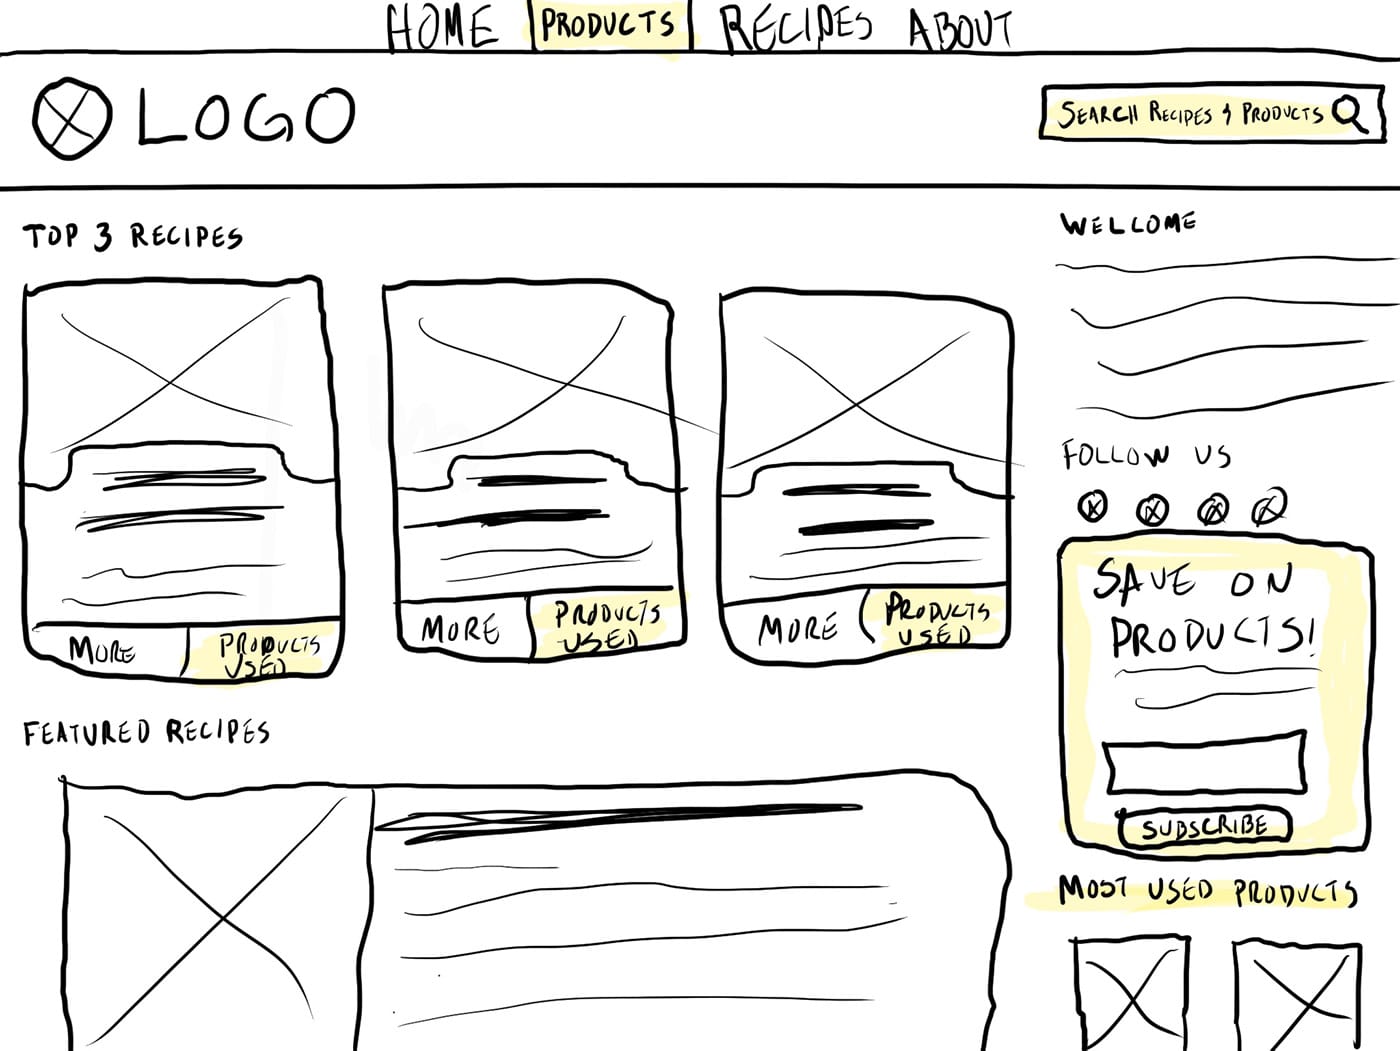 HOME PRODUCTS RECIPES ABOUT
LOGO
SEARCH RECIPES & PRODUCTS
TOP 3 RECIPES
MORE
PRODUCTS
USED
MORE
PRODUCTS
USED
MORE
PRODUCTS
USED
FEATURED RECIPES
WELCOME
FOLLOW US
SAVE ON
PRODUCTS!
SUBSCRIBE
MOST USED PRODUCTS